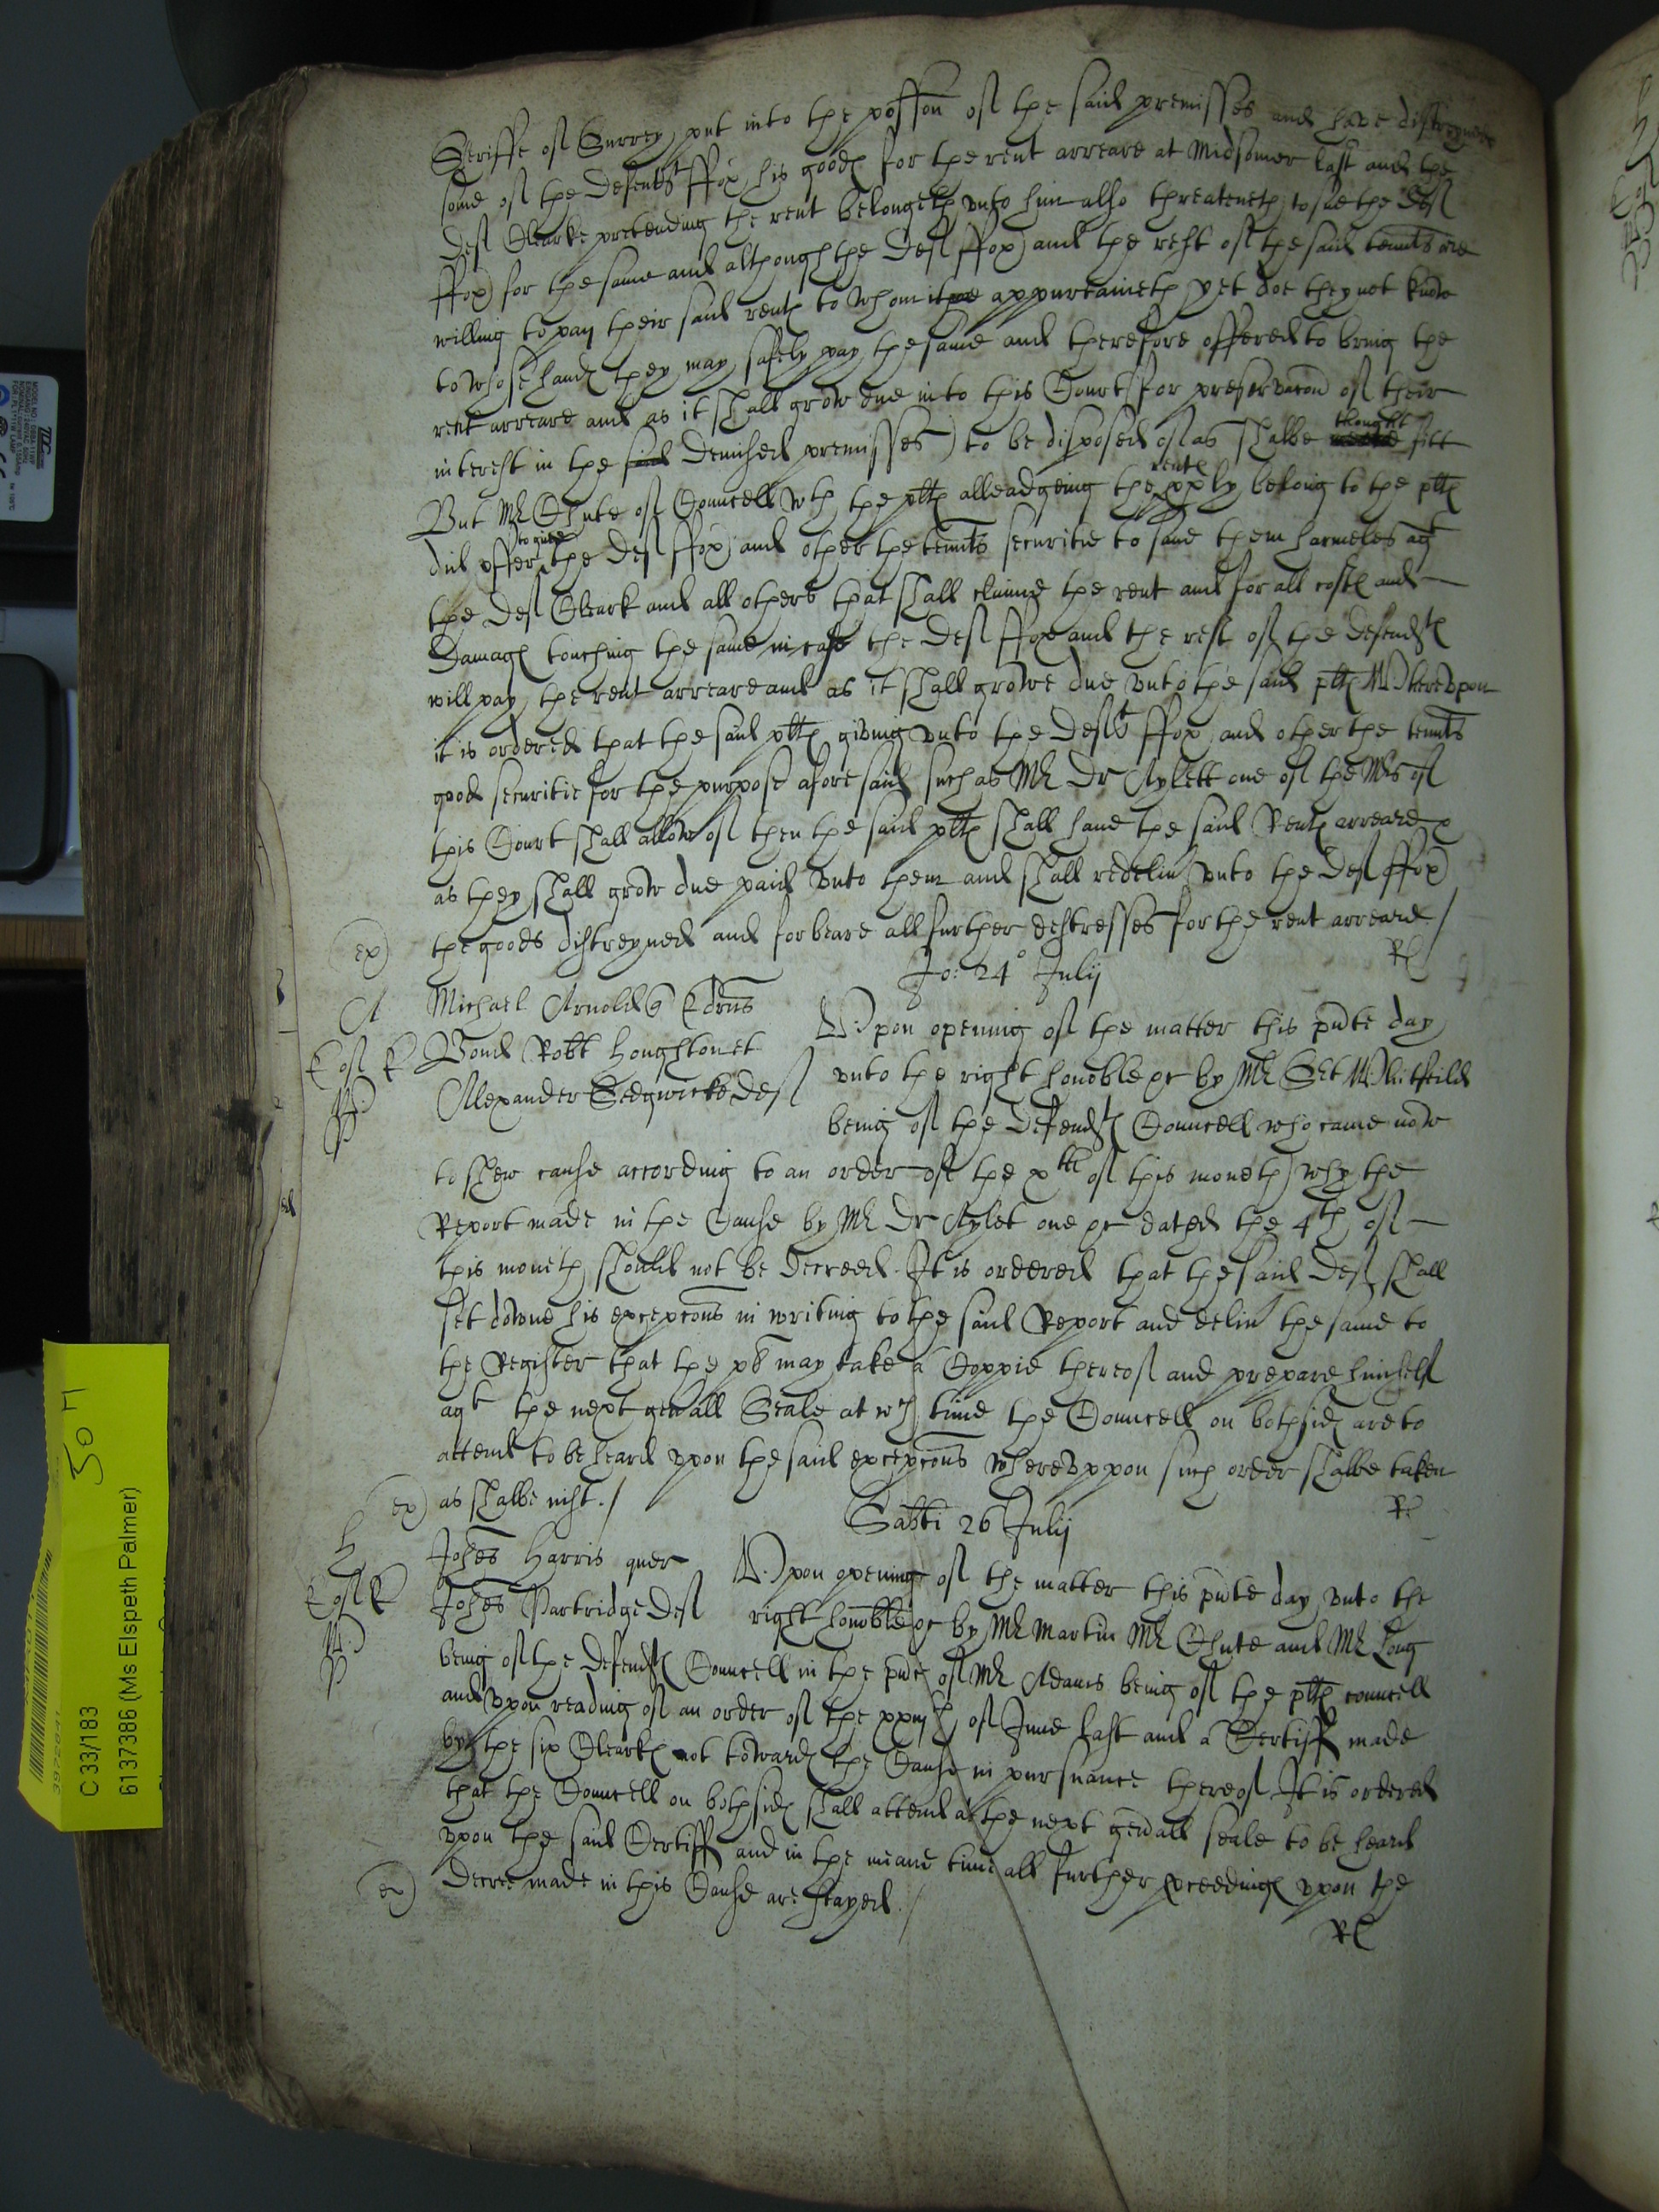 Sheriffe of Surrey put into the possion of the said premisses and have distreyned
some of the Defendts ffox his goodes for the rent arreare at Midsomer last and the
Def Clearke pretending the rent belongeth vnto him also threateneth to sue the Def
ffox for the same and although the Def ffox and the rest of the said tennts are
willing to pay their said rents to whom it appurtaineth yet doe they not knowe
to whose hands they may safely pay the same and therefore offered to bring the
rent arreare and as it shall grow due into this Court (for preservacon of their
interest in the said demised premisses) to be disposed of as shalbe thought fitt
But Mr Chute of Councell wth the plts alleadgeing the rents pply belong to the plts
did offer to give the Def ffox and other the tennts securitie to save them harmeles agt
the Def Cleark and all others that shall claime the rent and for all costs and
damags touching the same in case the Def ffox and the rest of the defendts
will pay the rent arreare and as it shall growe due vnto the said plts Wherevpon
it is ordered that the said plts giving vnto the Deft ffox and other the tennts
good securitie for the purpose aforesaid such as Mr Dr Aylett one of the Mrs of
this Court shall allow of then the said plts shall have the said Rents arreare &
as they shall grow due paid vnto them and shall redeliu vnto the Def ffox
ex) the goods distreyned and forbeare all further distresses for the rent arreare /
Rl
Jo: 24° Julij
A Michael Arnold
Vpon opening of the matter this pnte day
Bond Robt Houghton et
vnto the right honoble &c by Mr Sit Whitfeild
Alexander Sedgwicke Def
being of the Defendts Councell who came now
to shew cause according to an order of the xth of this moneth why the
Report made in the Cause by Mr Dr Aylet one &c dated the 4th of
this moneth should not be decreed. It is ordered that the said Def shall
set downe his excepcons in writing to the said Report and deliu the same to
the Register that the pl may take a Coppie thereof and prepare himself
agt the next genall Seale at wch time the Councell on both sides are to
attend to be heard vpon the said excepcons wherevppon such order shalbe taken
ex) as shalbe iust ./
Rl
Sabti 26 Julij
H Johes Harris quer
Vpon opening of the matter this pnte day vnto the
Johes Partridge Def
right honoble &c by Mr Martin Mr Chute and Mr Long
being of the Defendts Councell in the pnce of Mr Adams being of the plts councell
and vpon reading of an order of the xxiijth of June last and a Certiff made
by the six Clearks not towards the Cause in pursuance thereof It is ordered
that the Councell on both sides shall attend at the next genall seale to be heard
vpon the said Certiff and in the meane time all further pceedings vpon the
ex) decree made in this Cause are stayed. /
Rl
C 33/183
6137386 (Ms Elspeth Palmer)